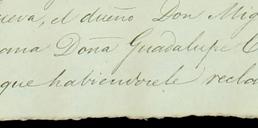 ueva, el dueño Don Mig
ana Doña Guadalupe C
que habiendosele recla